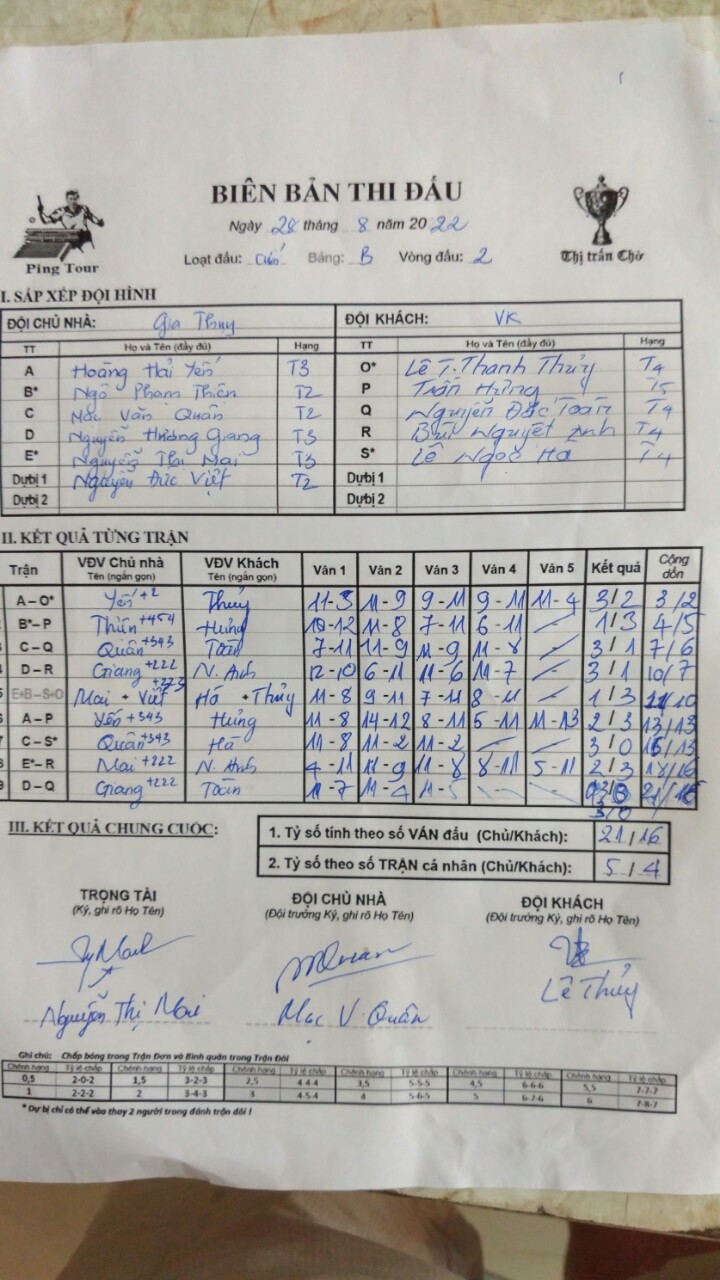 BIÊN BẢN THI ĐẤU
Ping Tour
Thị trấn Chờ
Ngày 28 tháng 8 năm 2022
Loạt đấu: cuối Bảng: B Vòng đấu: 2
I. SẮP XẾP ĐỘI HÌNH
ĐỘI CHỦ NHÀ: Gia Thụy ĐỘI KHÁCH: VK
TT Họ và Tên (đầy đủ) Hạng TT Họ và Tên (đầy đủ) Hạng
A Hoàng Hải Yến T3 O* Lê T. Thanh Thủy T4
B* Ngô Phạm Thiên T2 P Trần Hưng T5
C Mạc Văn Quân T2 Q Nguyễn Đức Toàn T4
D Nguyễn Hương Giang T3 R Bùi Nguyệt Anh T4
E* Nguyễn Thị Mai T3 S* Lê Ngọc Hà T4
Dự bị 1 Nguyễn Đức Việt T2 Dự bị 1
Dự bị 2 Dự bị 2
II. KẾT QUẢ TỪNG TRẬN
Trận VĐV Chủ nhà Tên (ngắn gọn) VĐV Khách Tên (ngắn gọn) Ván 1 Ván 2 Ván 3 Ván 4 Ván 5 Kết quả Cộng dồn
A – O* Yến Thủy 11-3 11-9 9-11 9-11 11-4 3/2 3/2
B* – P Thiên +454 Hưng 10-12 11-8 7-11 6-11 – 1/3 4/5
C – Q Quân +343 Toàn 7-11 11-9 11-9 11-8 – 3/1 7/6
D – R Giang +222 N. Anh 12-10 6-11 11-6 11-7 – 3/1 10/7
E+B – S+O Mai + Việt Hà + Thủy 11-8 9-11 7-11 8-11 – 1/3 11/10
A – P Yến +343 Hưng 11-8 14-12 8-11 5-11 11-13 2/3 13/13
C – S* Quân +343 Hà 11-8 11-2 11-2 – – 3/0 16/13
E* – R Mai +222 N. Anh 4-11 11-9 11-8 8-11 5-11 2/3 18/16
D – Q Giang +222 Toàn 11-7 11-4 11-5 3/0 21/16
III. KẾT QUẢ CHUNG CUỘC:
1. Tỷ số tính theo số VÁN đấu (Chủ/Khách): 21/16
2. Tỷ số theo số TRẬN cá nhân (Chủ/Khách): 5/4
TRỌNG TÀI ĐỘI CHỦ NHÀ ĐỘI KHÁCH
(Ký, ghi rõ Họ Tên) (Đội trưởng Ký, ghi rõ Họ Tên) (Đội trưởng Ký, ghi rõ Họ Tên)
Nguyễn Thị Mai Mạc V. Quân Lê Thủy
Ghi chú: Chấp bóng trong Trận Đơn và Bình quân trong Trận Đôi
Chênh hạng Tỷ lệ chấp Chênh hạng Tỷ lệ chấp Chênh hạng Tỷ lệ chấp Chênh hạng Tỷ lệ chấp Chênh hạng Tỷ lệ chấp Chênh hạng Tỷ lệ chấp
0,5 2-0-2 1,5 3-2-3 2,5 4-4-4 3,5 5-5-5 4,5 6-6-6 5,5 7-7-7
1 2-2-2 2 3-4-3 3 4-5-4 4 5-6-5 5 6-7-6 6 7-8-7
* Dự bị chỉ có thể vào thay 2 người trong đánh trận đôi !